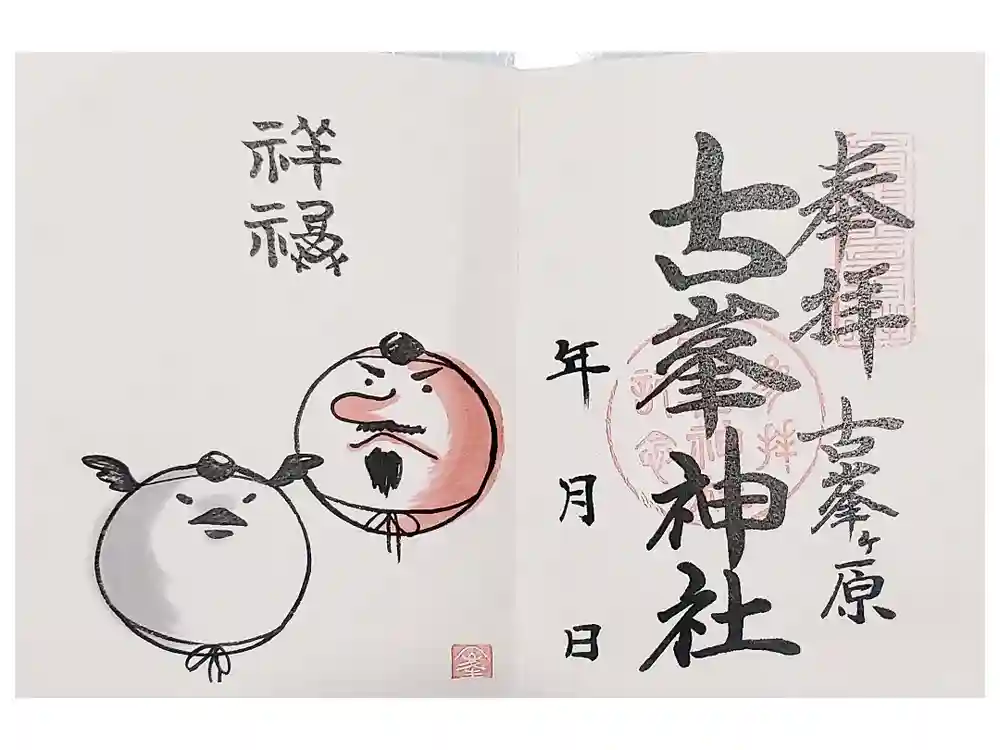 奉拝
古峯ヶ原
古峯神社
年 月 日
祥
禄
峯